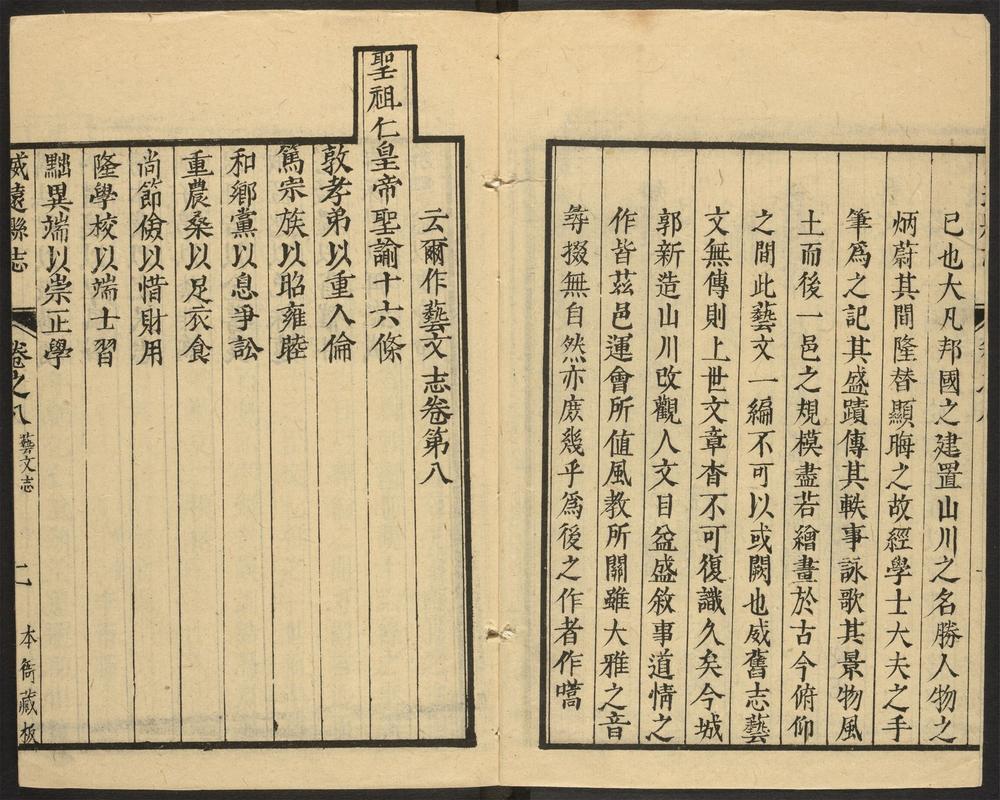 已也大凡邦國之建置山川之名勝人物之
炳蔚其間隆替顯晦之故經學士大夫之手
筆爲之記其盛蹟傳其軼事詠歌其景物風
土而後一邑之規模盡若繪畫於古今俯仰
之間此藝文一編不可以或闕也威舊志藝
文無傳則上世文章杳不可復識久矣今城
郭新造山川改觀人文日益盛敘事道情之
作皆茲邑運會所值風教所關雖大雅之音
尋掇無自然亦庶幾乎爲後之作者作嚆
云爾作藝文志卷第八
聖祖仁皇帝聖諭十六條
敦孝弟以重人倫
篤宗族以昭雍睦
和鄉黨以息爭訟
重農桑以足衣食
尚節儉以惜財用
隆學校以端士習
黜異端以崇正學
威遠縣志
卷之八
藝文志
二
本衙藏板